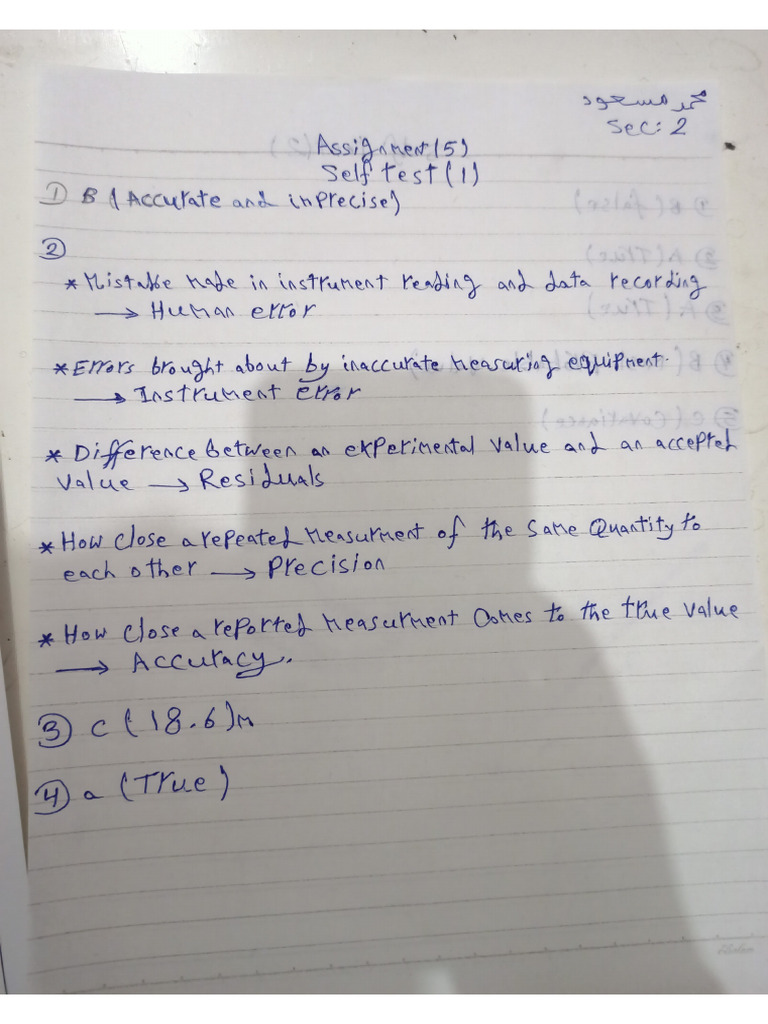 محمد مسعود
Sec: 2
Assignment (5)
Self test (1)
① B (Accurate and inprecise)
②
* Mistake made in instrument reading and data recording
→ Human error
* Errors brought about by inaccurate measuring equipment.
→ Instrument error
* Difference between an experimental value and an accepted
value → Residuals
* How close a repeated measurment of the same Quantity to
each other → Precision
* How close a reported measurment comes to the true value
→ Accuracy.
③ C (18.6)m
④ a (True)